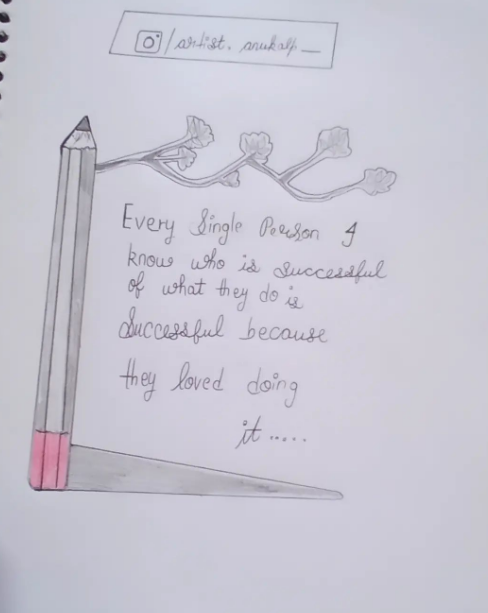 /artist. anukalp__
Every Single Person I
know who is successful
of what they do is
Successful because
they loved doing
it.....